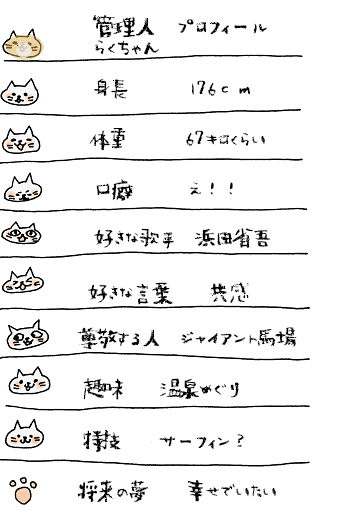 管理人 プロフィール
らくちゃん
身長 176cm
体重 67キロくらい
口癖 え！！
好きな歌手 浜田省吾
好きな言葉 共感
尊敬する人 ジャイアント馬場
趣味 温泉めぐり
特技 サーフィン？
将来の夢 幸せでいたい